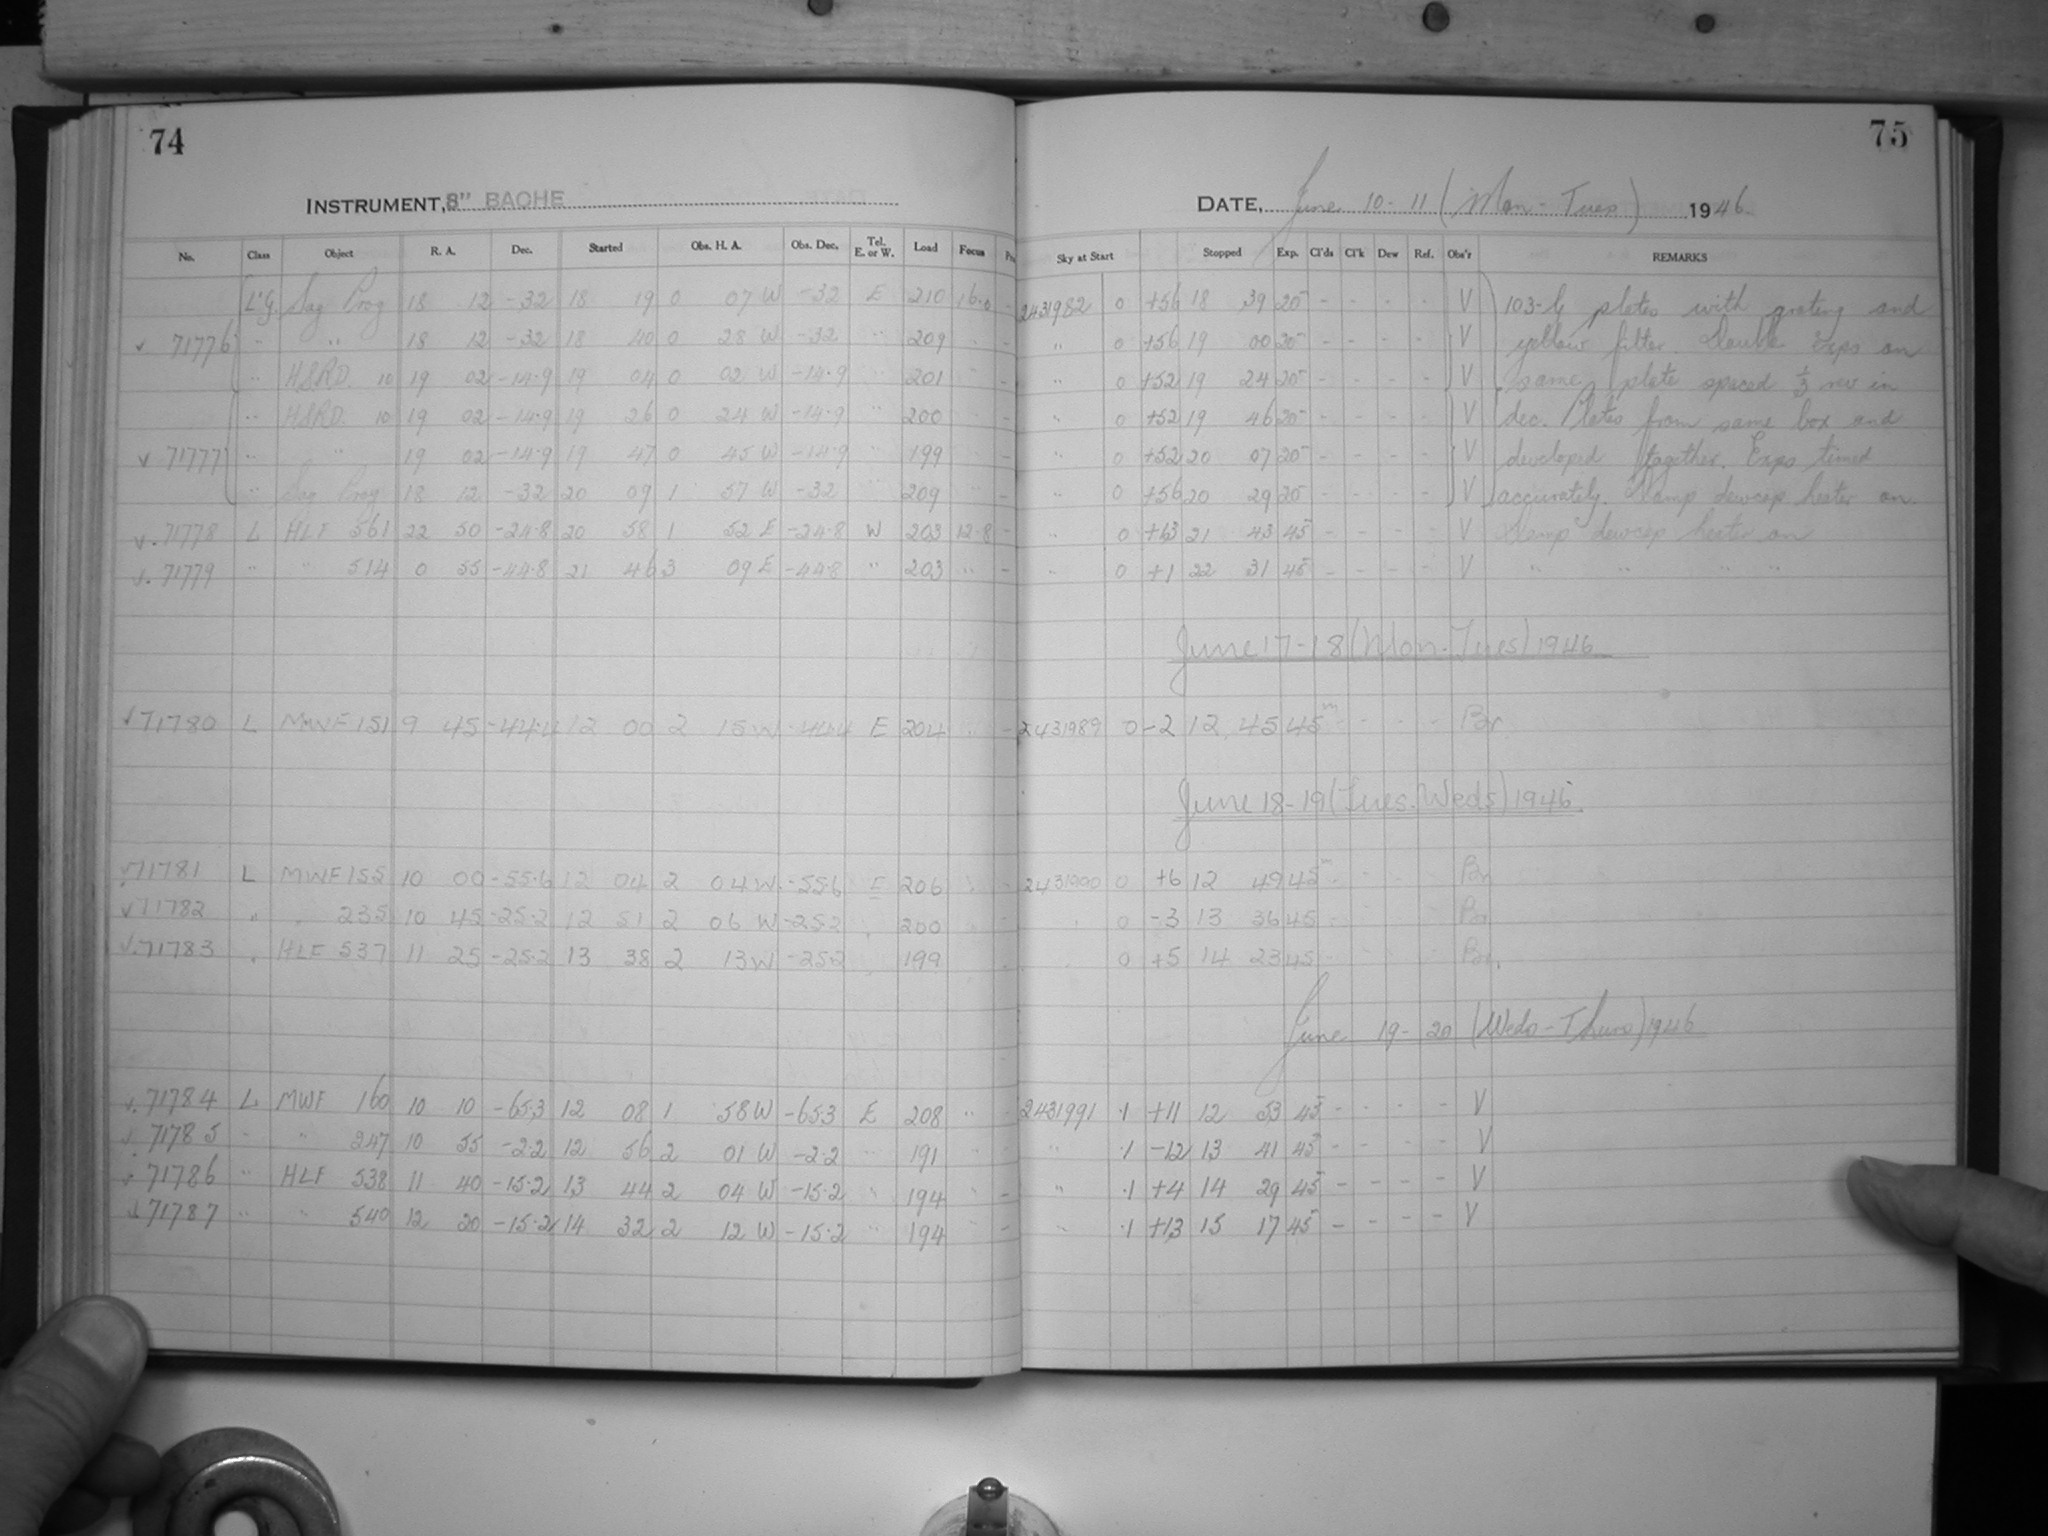 74
INSTRUMENT, 8" BACHE
No. Class Object R. A. Dec. Started Obs. H. A. Obs. Dec. Tel. E. or W. Load Focus
L'G. Sag Prog 18 12 -32 18 19 0 07 W -32 E 210 16.0 -
71776 " " 18 12 -32 18 40 0 28 W -32 " 209 " -
" HSRD. 10 19 02 -14.9 19 04 0 02 W -14.9 " 201 " -
" HSRD. 10 19 02 -14.9 19 26 0 24 W -14.9 " 200 " -
71777 " " 19 02 -14.9 19 47 0 45 W -14.9 " 199 " -
" Sag Prog 18 12 -32 20 09 1 57 W -32 " 209 " -
71778 L HLF 561 22 50 -24.8 20 58 1 52 E -24.8 W 203 12.8 -
71779 " " 514 0 55 -44.8 21 46 3 09 E -44.8 " 203 " -
71780 L MWF 151 9 45 -44.4 12 00 2 15 W -44.4 E 204 " -
71781 L MWF 155 10 00 -55.6 12 04 2 04 W -55.6 E 206 " -
71782 " " 235 10 45 -25.2 12 51 2 06 W -25.2 " 200 " -
71783 " HLF 537 11 25 -25.2 13 38 2 13 W -25.2 " 199 -
71784 L MWF 160 10 10 -65.3 12 08 1 58 W -65.3 E 208 " -
71785 " " 247 10 55 -2.2 12 56 2 01 W -2.2 " 191 " -
71786 " HLF 538 11 40 -15.2 13 44 2 04 W -15.2 " 194 " -
71787 " " 540 12 20 -15.2 14 32 2 12 W -15.2 " 194 -
75
DATE, June 10-11 (Mon-Tues) 1946
Sky at Start Stopped Exp. Cl'ds Cl'k Dew Ref. Obs'r REMARKS
2431982 0 +56 18 39 20 - - - - V 103-G plates with grating and
" 0 +56 19 00 20 - - - - V yellow filter. Double Expo on
" 0 +52 19 24 20 - - - - V same plate spaced 1/3 rev in
" 0 +52 19 46 20 - - - - V dec. Plates from same box and
" 0 +52 20 07 20 - - - - V developed together. Expo timed
" 0 +56 20 29 20 - - - - V accurately. Lamp dewcap heater on.
" 0 +63 21 43 45 - - - - V Lamp dewcap heater on
" 0 +1 22 31 45 - - - - V " " " "
June 17-18 (Mon-Tues) 1946
2431989 0 -2 12 45 45m - - - - Br.
June 18-19 (Tues-Weds) 1946.
2431990 0 +6 12 49 45m - - - - Br
" 0 -3 13 36 45 - - - - Br
" 0 +5 14 23 45 - - - - Br.
June 19-20 (Weds-Thurs) 1946
2431991 .1 +11 12 53 45 - - - - V
" .1 -12 13 41 45 - - - - V
" .1 +4 14 29 45 - - - - V
" .1 +13 15 17 45 - - - - V